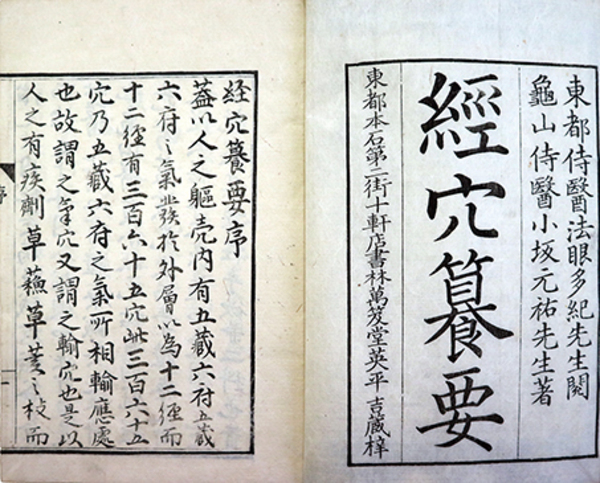 東都侍醫法眼多紀先生閱
龜山侍醫小坂元祐先生著
經穴纂要
東都本石第二街十軒店書林萬笈堂英平吉藏梓
經穴纂要序
蓋以人之軀壳內有五藏六府五藏
六府之氣發於外層以為十二經而
十二經有三百六十五穴此三百六十五
穴乃五藏六府之氣所相輸應處
也故謂之氣穴又謂之輸穴也是以
人之有疾劑草蘓草荄之枝而
序